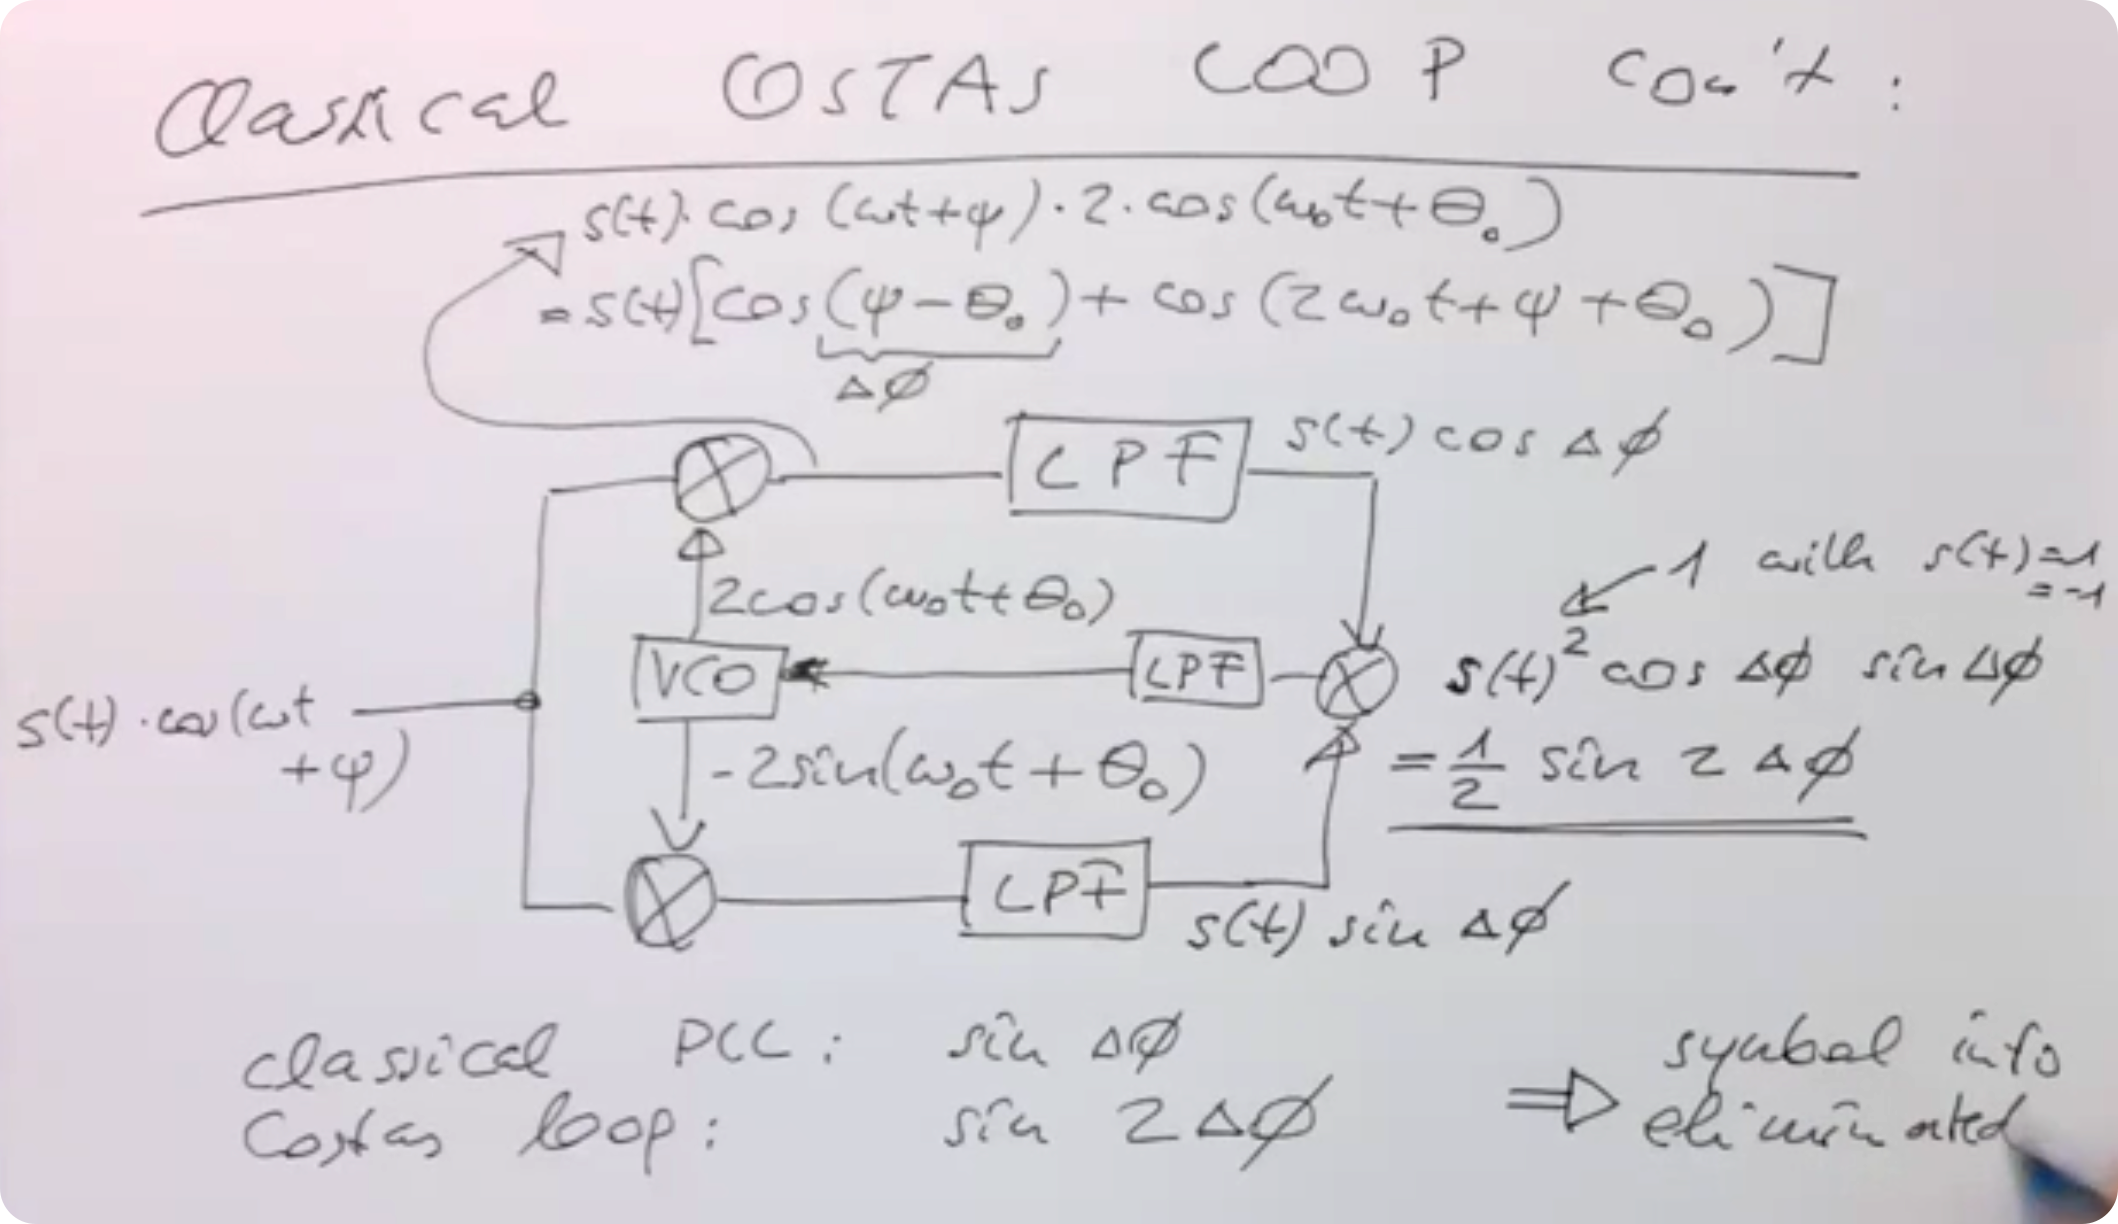 Classical COSTAS LOOP con't:
s(t)·cos(ωt+φ)·2·cos(ω₀t+θ₀)
=s(t)[cos(φ-θ₀)+cos(2ω₀t+φ+θ₀)]
Δϕ
LPF
s(t) cos Δϕ
1 with s(t)=1
=-1
2cos(ω₀t+θ₀)
VCO
LPF
s(t)² cos Δϕ sin Δϕ
s(t)·cos(ωt
+φ)
-2sin(ω₀t+θ₀)
=1/2 sin 2Δϕ
LPF
s(t) sin Δϕ
classical PLL: sin Δϕ
Costas loop: sin 2Δϕ
⇒ symbol info
eliminated